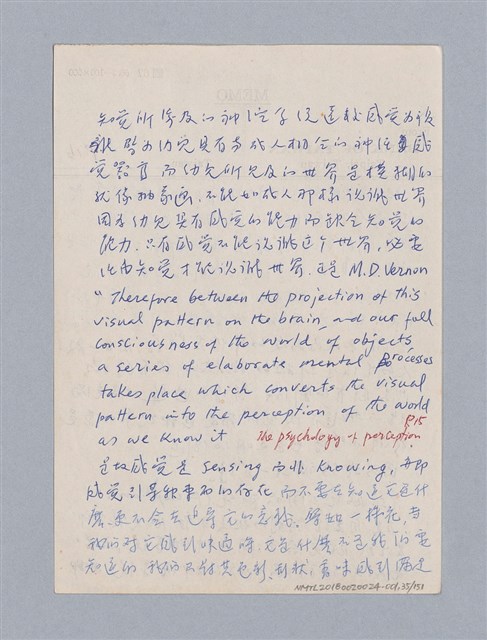 知覺所涉及的神經系統遠較感受為複
雜 譬如幼兒具有與成人相仝的神經感
覺器官 而幼兒所見及的世界是模糊的
就像抽象畫.不能如成人那樣認識世界
因為幼兒具有感覺的能力而缺乏知覺的
能力.只有感覺不能認識這个世界,必要
經由知覺才能認識世界.正是 M.D. Vernon
"Therefore between the projection of this
visual pattern on the brain, and our full
consciousness of the world of objects
a series of elaborate mental processes
takes place which converts the visual
pattern into the perception of the world
as we know it the psychology of perception P15
是故感覺是 Sensing 而非 Knowing,
感覺引導 的存在 而不要去知道它是什
麼.更不會去追尋它的意義.譬如一棵花,當
我們對它感到味道時 它是什麼不是我們要
知道的 我們只對其色彩、形狀、 味感到
NMTL20180020024-001.35/151